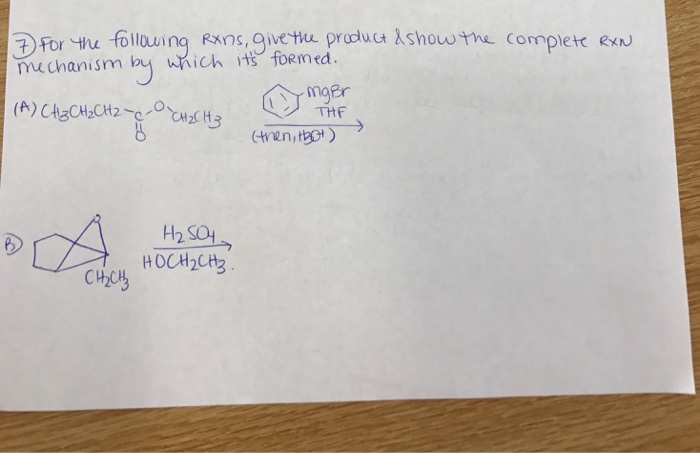 7) For the following Rxns, give the product & show the complete RXN
mechanism by which it's formed.
(A) CH3CH2CH2-C-O CH2CH3
O
MgBr
THF
(then, H3O+)
B)
O
CH2CH3
H2SO4
HOCH2CH3.